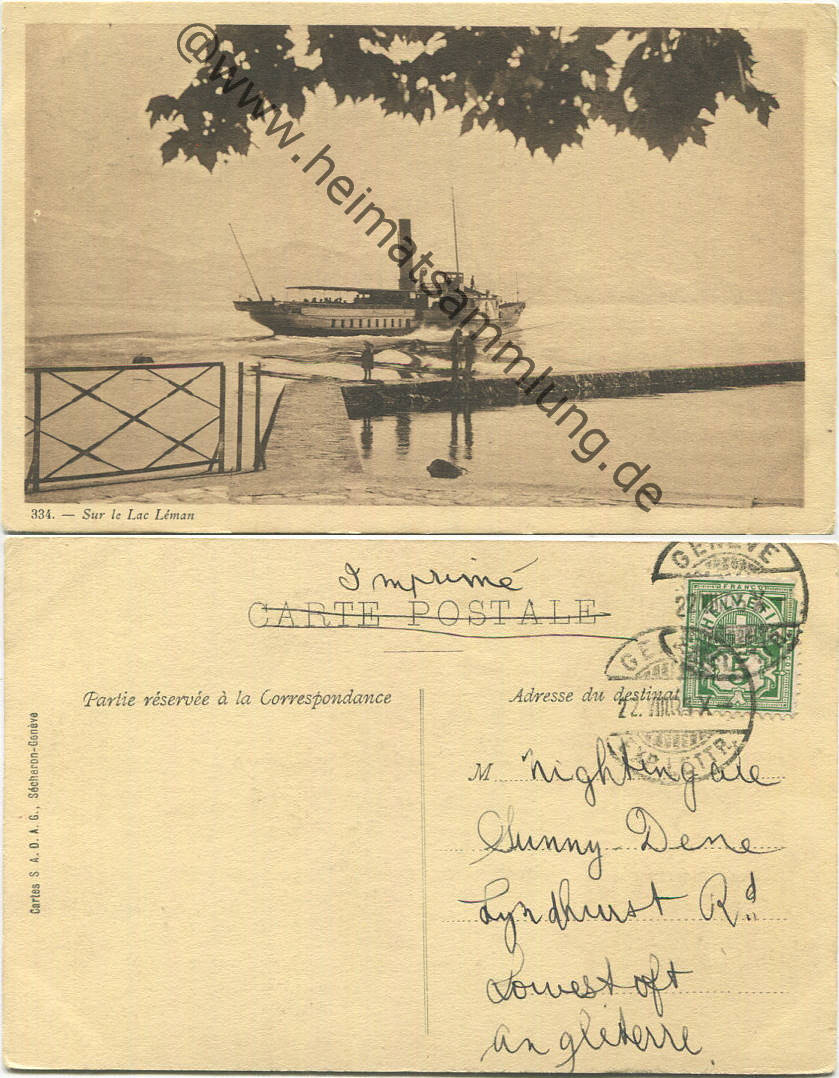 @www.heimatsammlung.de
334. — Sur le Lac Léman
Imprimé
CARTE POSTALE
GENÈVE
FRANCO
HELVETIA
5
GENÈVE
22.VIII. X —
EXP. LETTR.
Partie réservée à la Correspondance
Adresse du destinat
Cartes S.A.D.A.G., Sécheron-Genève
M Nightingale
Sunny-Dene
Lyndhurst Rd
Lowestoft
Angleterre.